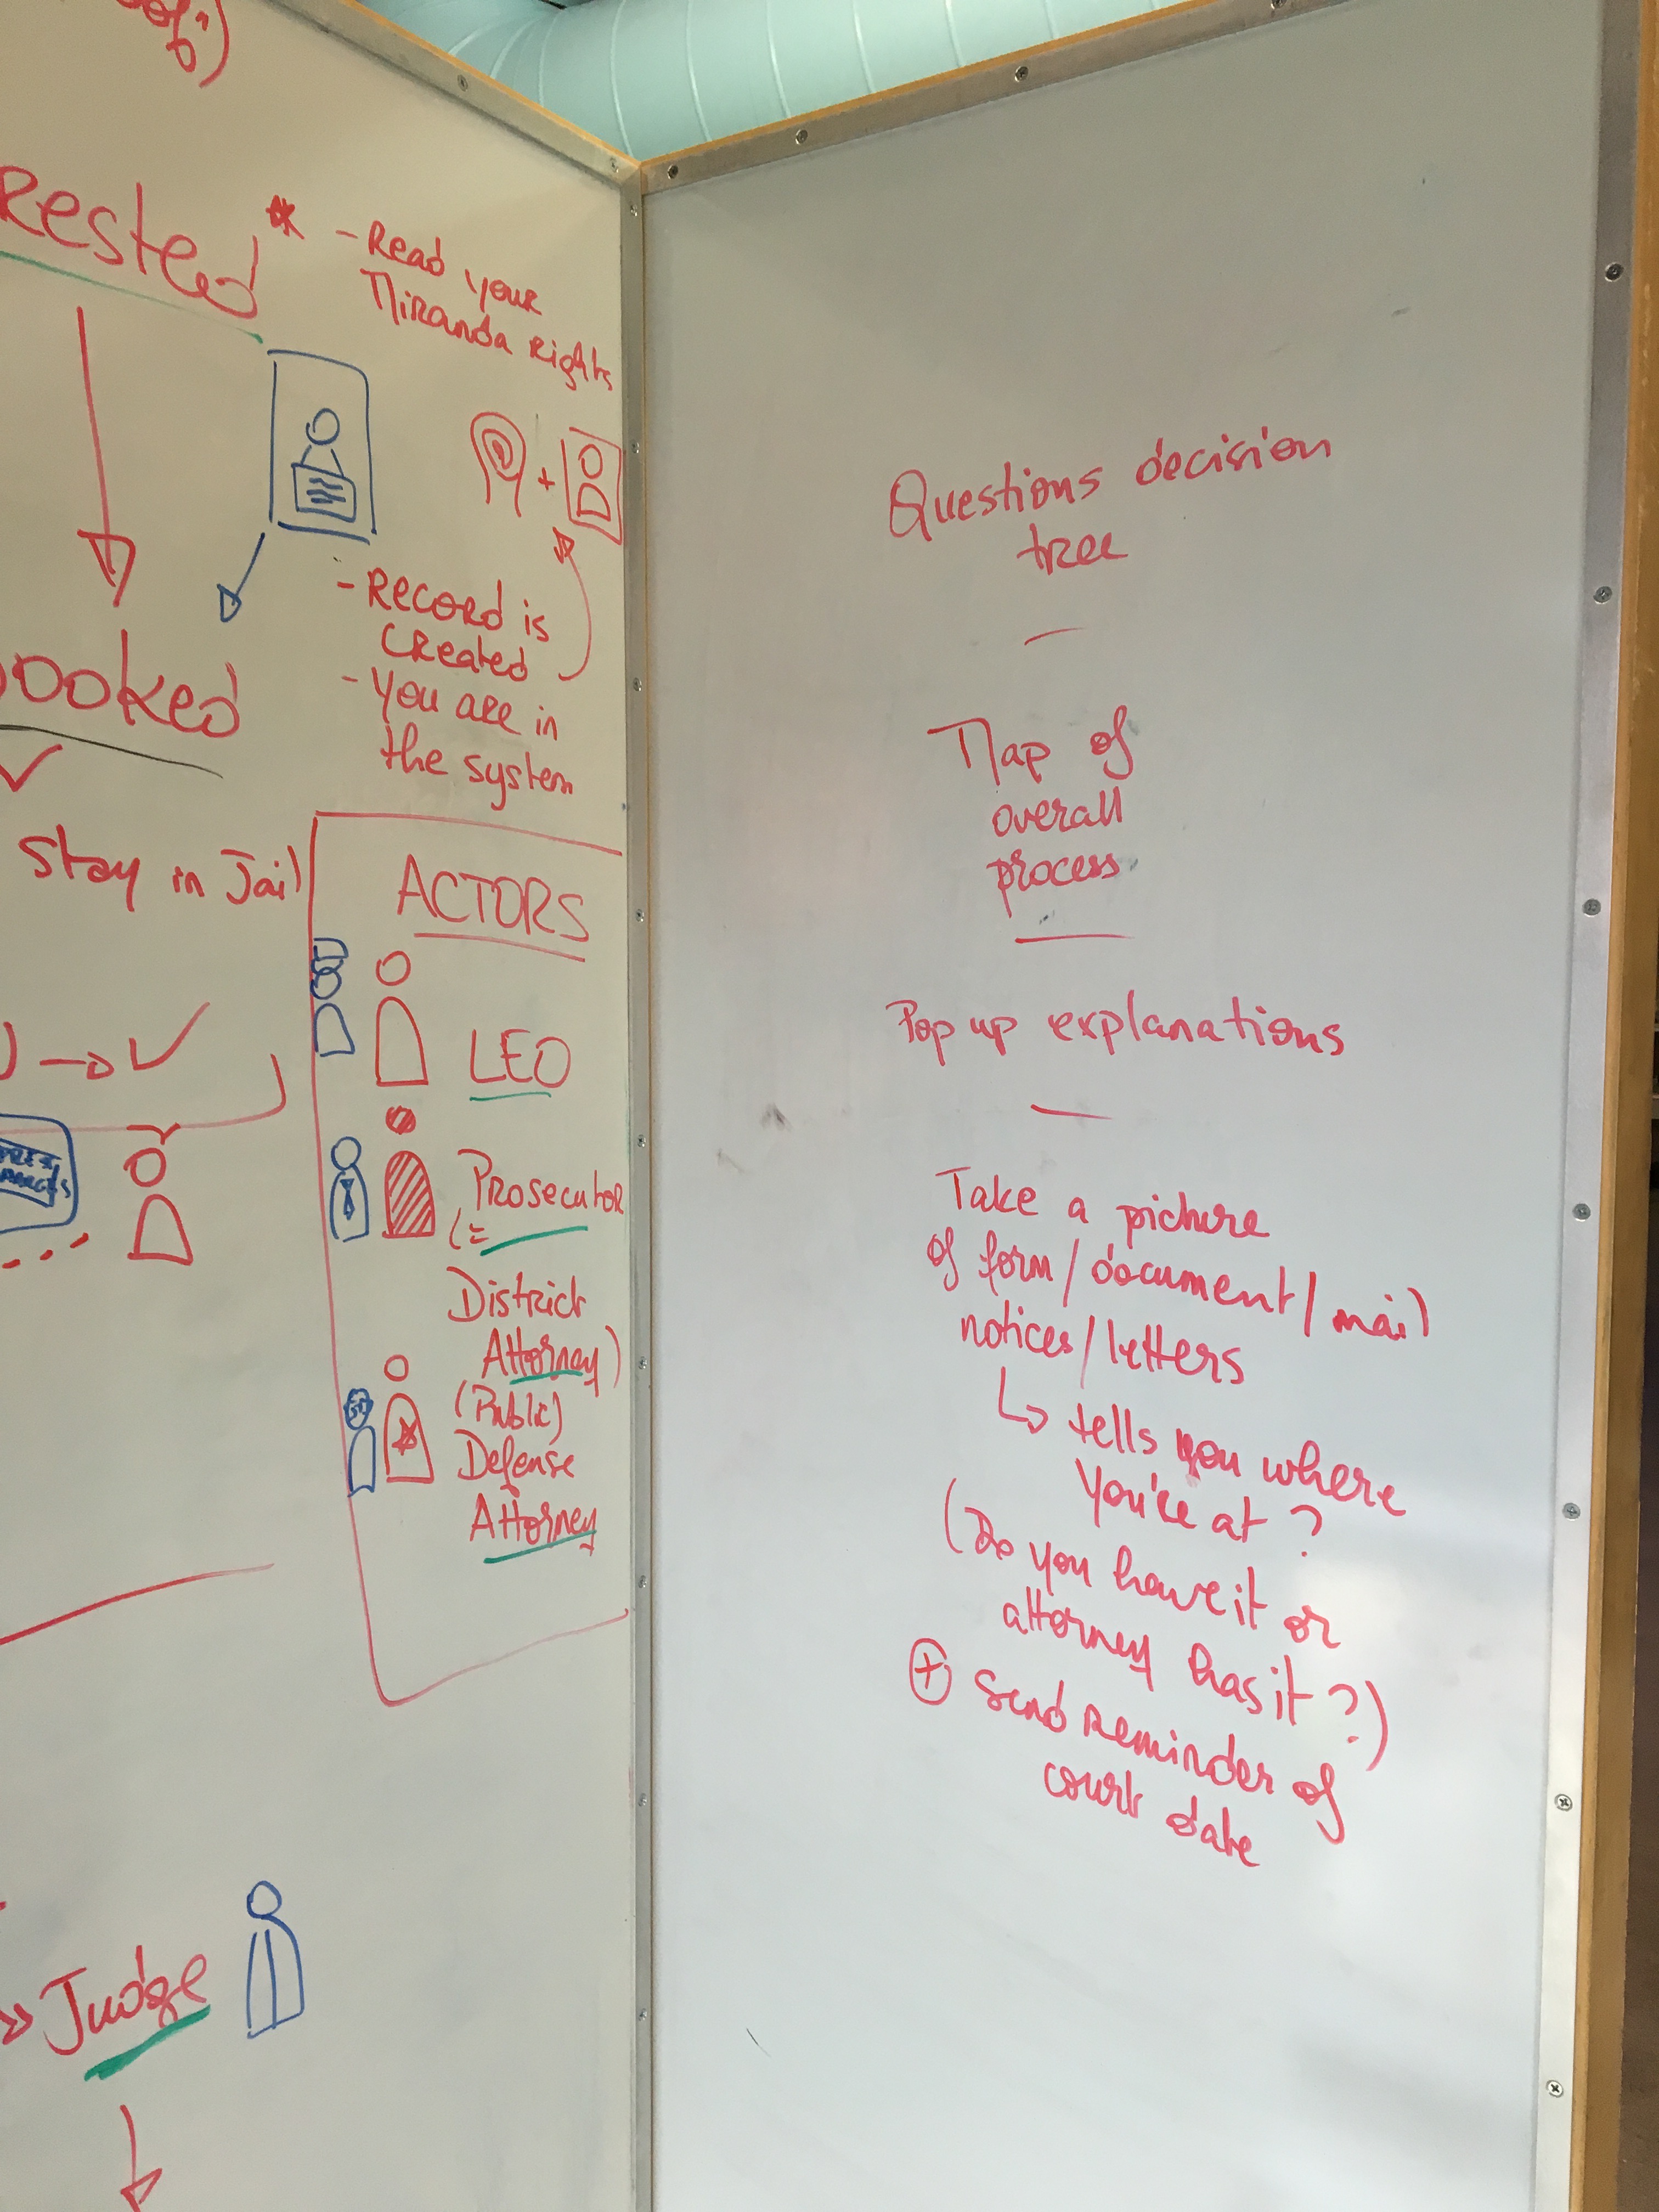 Rested * - Read your
Miranda Rights
- Record is
created
- You are in
the system
ooked
stay in Jail
ACTORS
LEO
Prosecutor
(=
District
Attorney)
(Public)
Defense
Attorney
Judge
Questions decision
tree
Map of
overall
process
Pop up explanations
Take a picture
of form/document/mail
notices/letters
↳ tells you where
you're at?
(Do you have it or
attorney has it?)
⊕ Send reminder of
court date